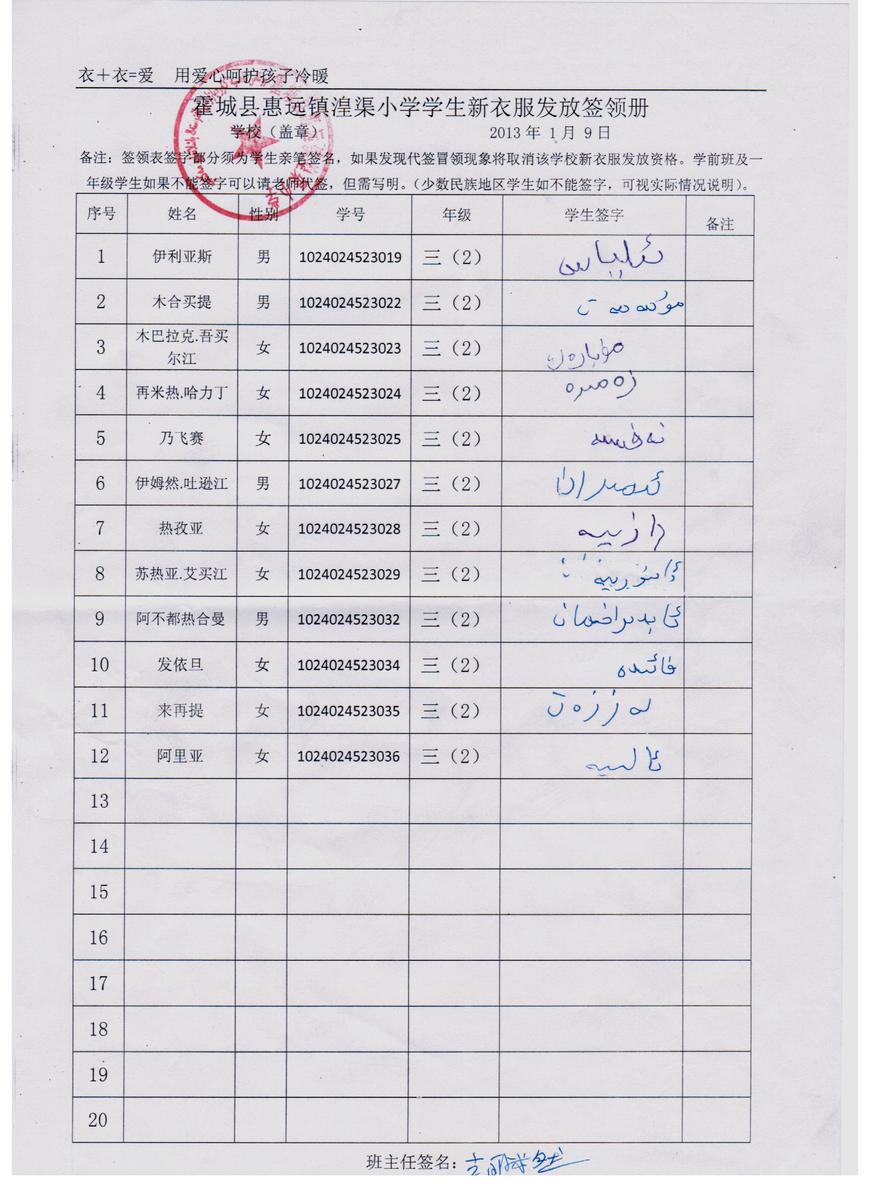 衣＋衣=爱 用爱心呵护孩子冷暖
霍城县惠远镇湟渠小学学生新衣服发放签领册
学校（盖章） 2013 年 1 月 9 日
备注：签领表签字部分须为学生亲笔签名，如果发现代签冒领现象将取消该学校新衣服发放资格。学前班及一
年级学生如果不能签字可以请老师代签，但需写明。（少数民族地区学生如不能签字，可视实际情况说明）。
序号 姓名 性别 学号 年级 学生签字 备注
1 伊利亚斯 男 1024024523019 三（2） ئىلياس
2 木合买提 男 1024024523022 三（2）
3 木巴拉克.吾买尔江 女 1024024523023 三（2）
4 再米热.哈力丁 女 1024024523024 三（2） زەمىرە
5 乃飞赛 女 1024024523025 三（2） نەفىسە
6 伊姆然.吐逊江 男 1024024523027 三（2） ئىمران
7 热孜亚 女 1024024523028 三（2） رازىيە
8 苏热亚.艾买江 女 1024024523029 三（2）
9 阿不都热合曼 男 1024024523032 三（2）
10 发依旦 女 1024024523034 三（2） فائىدە
11 来再提 女 1024024523035 三（2） لەززەت
12 阿里亚 女 1024024523036 三（2） ئالىيە
13
14
15
16
17
18
19
20
班主任签名：